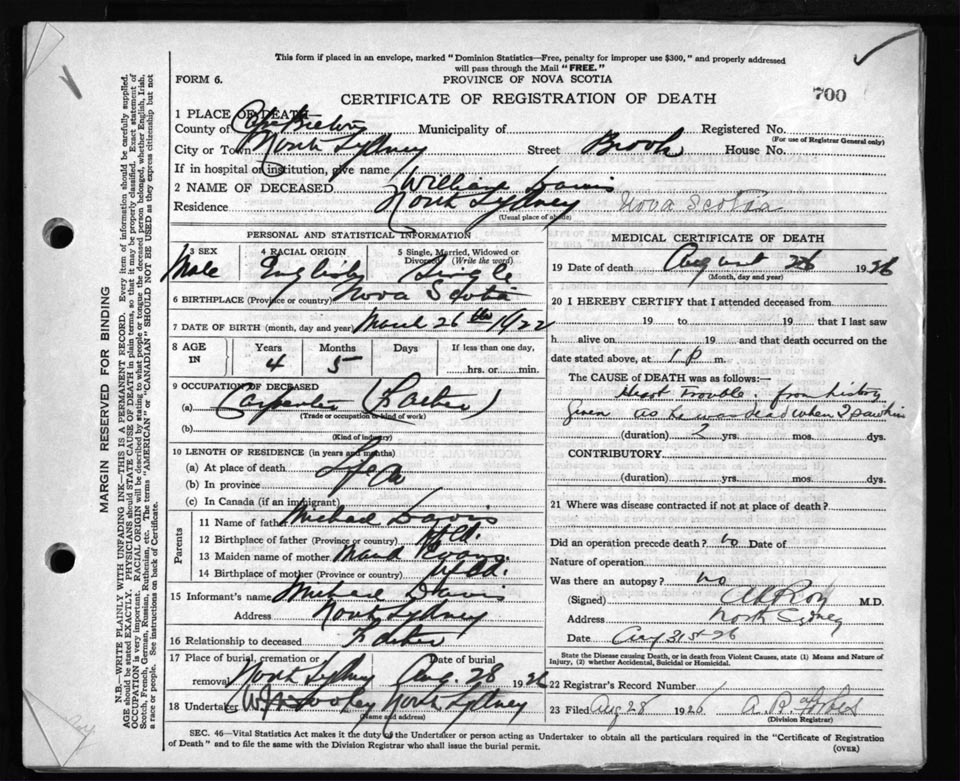 This form if placed in an envelope, marked "Dominion Statistics—Free, penalty for improper use $300," and properly addressed
will pass through the Mail "FREE."
FORM 6.
PROVINCE OF NOVA SCOTIA
CERTIFICATE OF REGISTRATION OF DEATH
700
1 PLACE OF DEATH
County of Cape Breton Municipality of Registered No.
(For use of Registrar General only)
City or Town North Sydney Street Brook House No.
If in hospital or institution, give name
2 NAME OF DECEASED William Davis
Residence North Sydney Nova Scotia
(Usual place of abode)
PERSONAL AND STATISTICAL INFORMATION
3 SEX 4 RACIAL ORIGIN 5 Single, Married, Widowed or Divorced (Write the word)
Male English Single
6 BIRTHPLACE (Province or country) Nova Scotia
7 DATE OF BIRTH (month, day and year) March 26th 1922
8 AGE IN Years Months Days If less than one day,
4 5 hrs. or min.
9 OCCUPATION OF DECEASED
(a) Carpenter (Father)
(Trade or occupation or kind of work)
(b)
(Kind of industry)
10 LENGTH OF RESIDENCE (in years and months)
(a) At place of death Life
(b) In province
(c) In Canada (if an immigrant)
Parents
11 Name of father Michael Davis
12 Birthplace of father (Province or country) Nfld.
13 Maiden name of mother Maud Evans.
14 Birthplace of mother (Province or country) Nfld.
15 Informant's name Michael Davis
Address North Sydney
16 Relationship to deceased Father
17 Place of burial, cremation or removal Date of burial
North Sydney Aug. 28 1926
18 Undertaker North Sydney
(Name and address)
MEDICAL CERTIFICATE OF DEATH
19 Date of death August 26 1926
(Month, day and year)
20 I HEREBY CERTIFY that I attended deceased from
19 to 19 that I last saw
h alive on 19 and that death occurred on the
date stated above, at 1 p m.
The CAUSE OF DEATH was as follows:—
Heart Trouble. from history
given as he was dead when I saw him
(duration) 2 yrs. mos. dys.
CONTRIBUTORY
(duration) yrs. mos. dys.
21 Where was disease contracted if not at place of death?
Did an operation precede death? no Date of
Nature of operation
Was there an autopsy? no
(Signed) M.D.
Address North Sydney
Date Aug 31st 26
State the Disease causing Death, or in death from Violent Causes, state (1) Means and Nature of
Injury, (2) whether Accidental, Suicidal or Homicidal.
22 Registrar's Record Number
23 Filed Aug 28 1926
(Division Registrar)
SEC. 46—Vital Statistics Act makes it the duty of the Undertaker or person acting as Undertaker to obtain all the particulars required in the "Certificate of Registration
of Death" and to file the same with the Division Registrar who shall issue the burial permit.
(OVER)
MARGIN RESERVED FOR BINDING
N.B.—WRITE PLAINLY WITH UNFADING INK—THIS IS A PERMANENT RECORD. Every item of information should be carefully supplied.
AGE should be stated EXACTLY. PHYSICIANS should STATE CAUSE OF DEATH in plain terms, so that it may be properly classified. Exact statement of
OCCUPATION is very important. RACIAL ORIGIN will be described by stating to what people or tongue the deceased person belonged, whether English, Irish,
Scotch, French, German, Russian, Ruthenian, etc. The terms "AMERICAN" or "CANADIAN" SHOULD NOT BE USED as they express citizenship but not
a race or people. See instructions on back of Certificate.